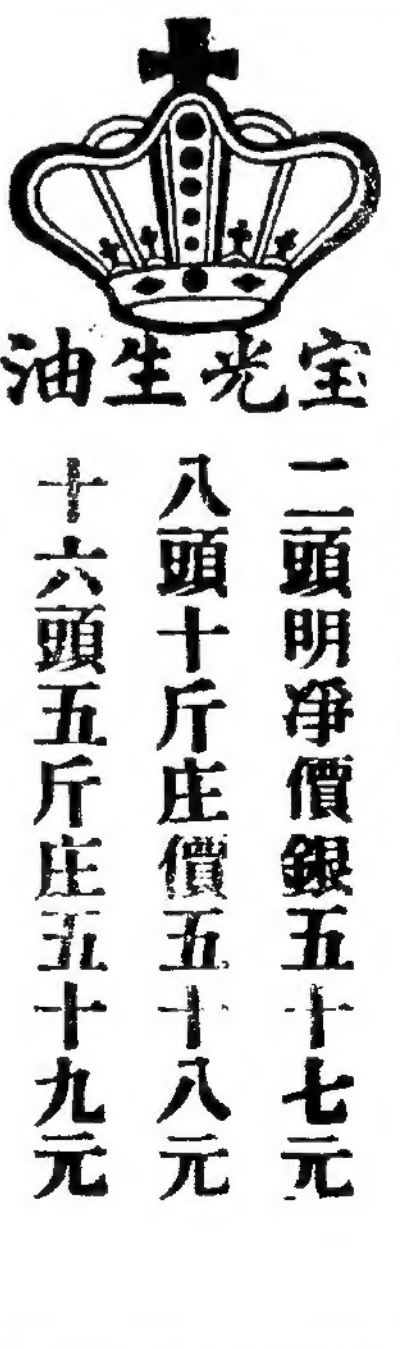 宝光生油
二頭明净價銀五十七元
八頭十斤庄價五十八元
十六頭五斤庄五十九元